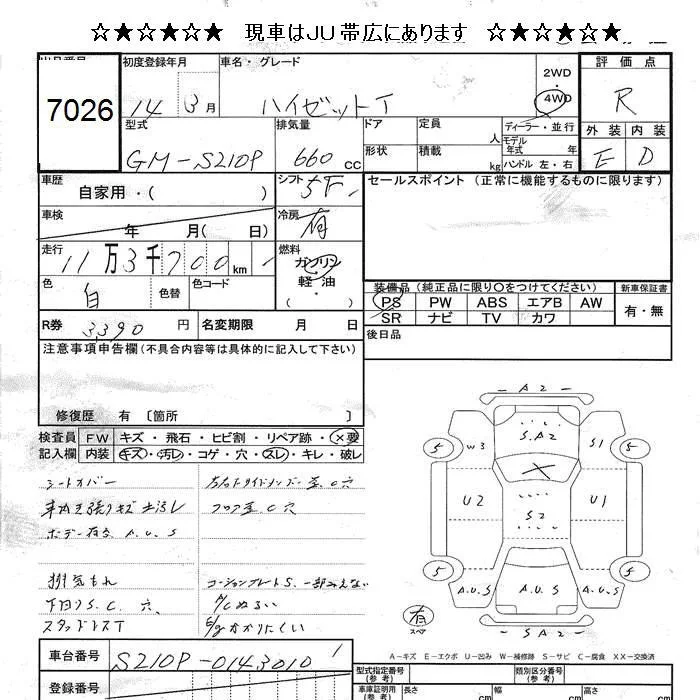 ☆★☆★☆★ 現車はJU帯広にあります ☆★☆★☆★
7026
初度登録年月 14 3月
車名・グレード ハイゼットT
2WD
4WD
評価点
R
外装 内装
E D
型式 GM-S210P
排気量 660 cc
ドア 定員 人
形状 積載 kg
ディーラー・並行
モデル年式 年
ハンドル 左・右
車歴 自家用・( )
シフト 5F
セールスポイント (正常に機能するものに限ります)
車検 年 月( 日)
冷房 有
走行 11万3千700km
燃料 ガソリン
軽油
色 白 色替 色コード
装備品 (純正品に限り○をつけてください)
新車保証書
PS PW ABS エアB AW
有・無
SR ナビ TV カワ
R券 3390 円 名変期限 月 日
後日品
注意事項申告欄(不具合内容等は具体的に記入して下さい)
修復歴 有 〔箇所 〕
検査員 FW キズ・飛石・ヒビ割・リペア跡・×要
記入欄 内装 キズ・汚レ・コゲ・穴・スレ・キレ・破レ
シートカバー
ボデー各所 A.U.S
フロア C 穴
排気もれ
コーションプレートS. 一部みえない
下回りS.C.穴
スタッドレスT
車台番号 S210P-0143010
登録番号
A2
SA2
W3
S1
5
5
U2
S2
U1
5
5
A.U.S
A.U.S
A.U.S
有
スペア
SA2
A-キズ E-エクボ U-凹み W-補修跡 S-サビ C-腐食 XX-交換済
型式指定番号
(参考)
類別区分番号
(参考)
車庫証明用
(参考)
長さ cm
幅 cm
高さ cm